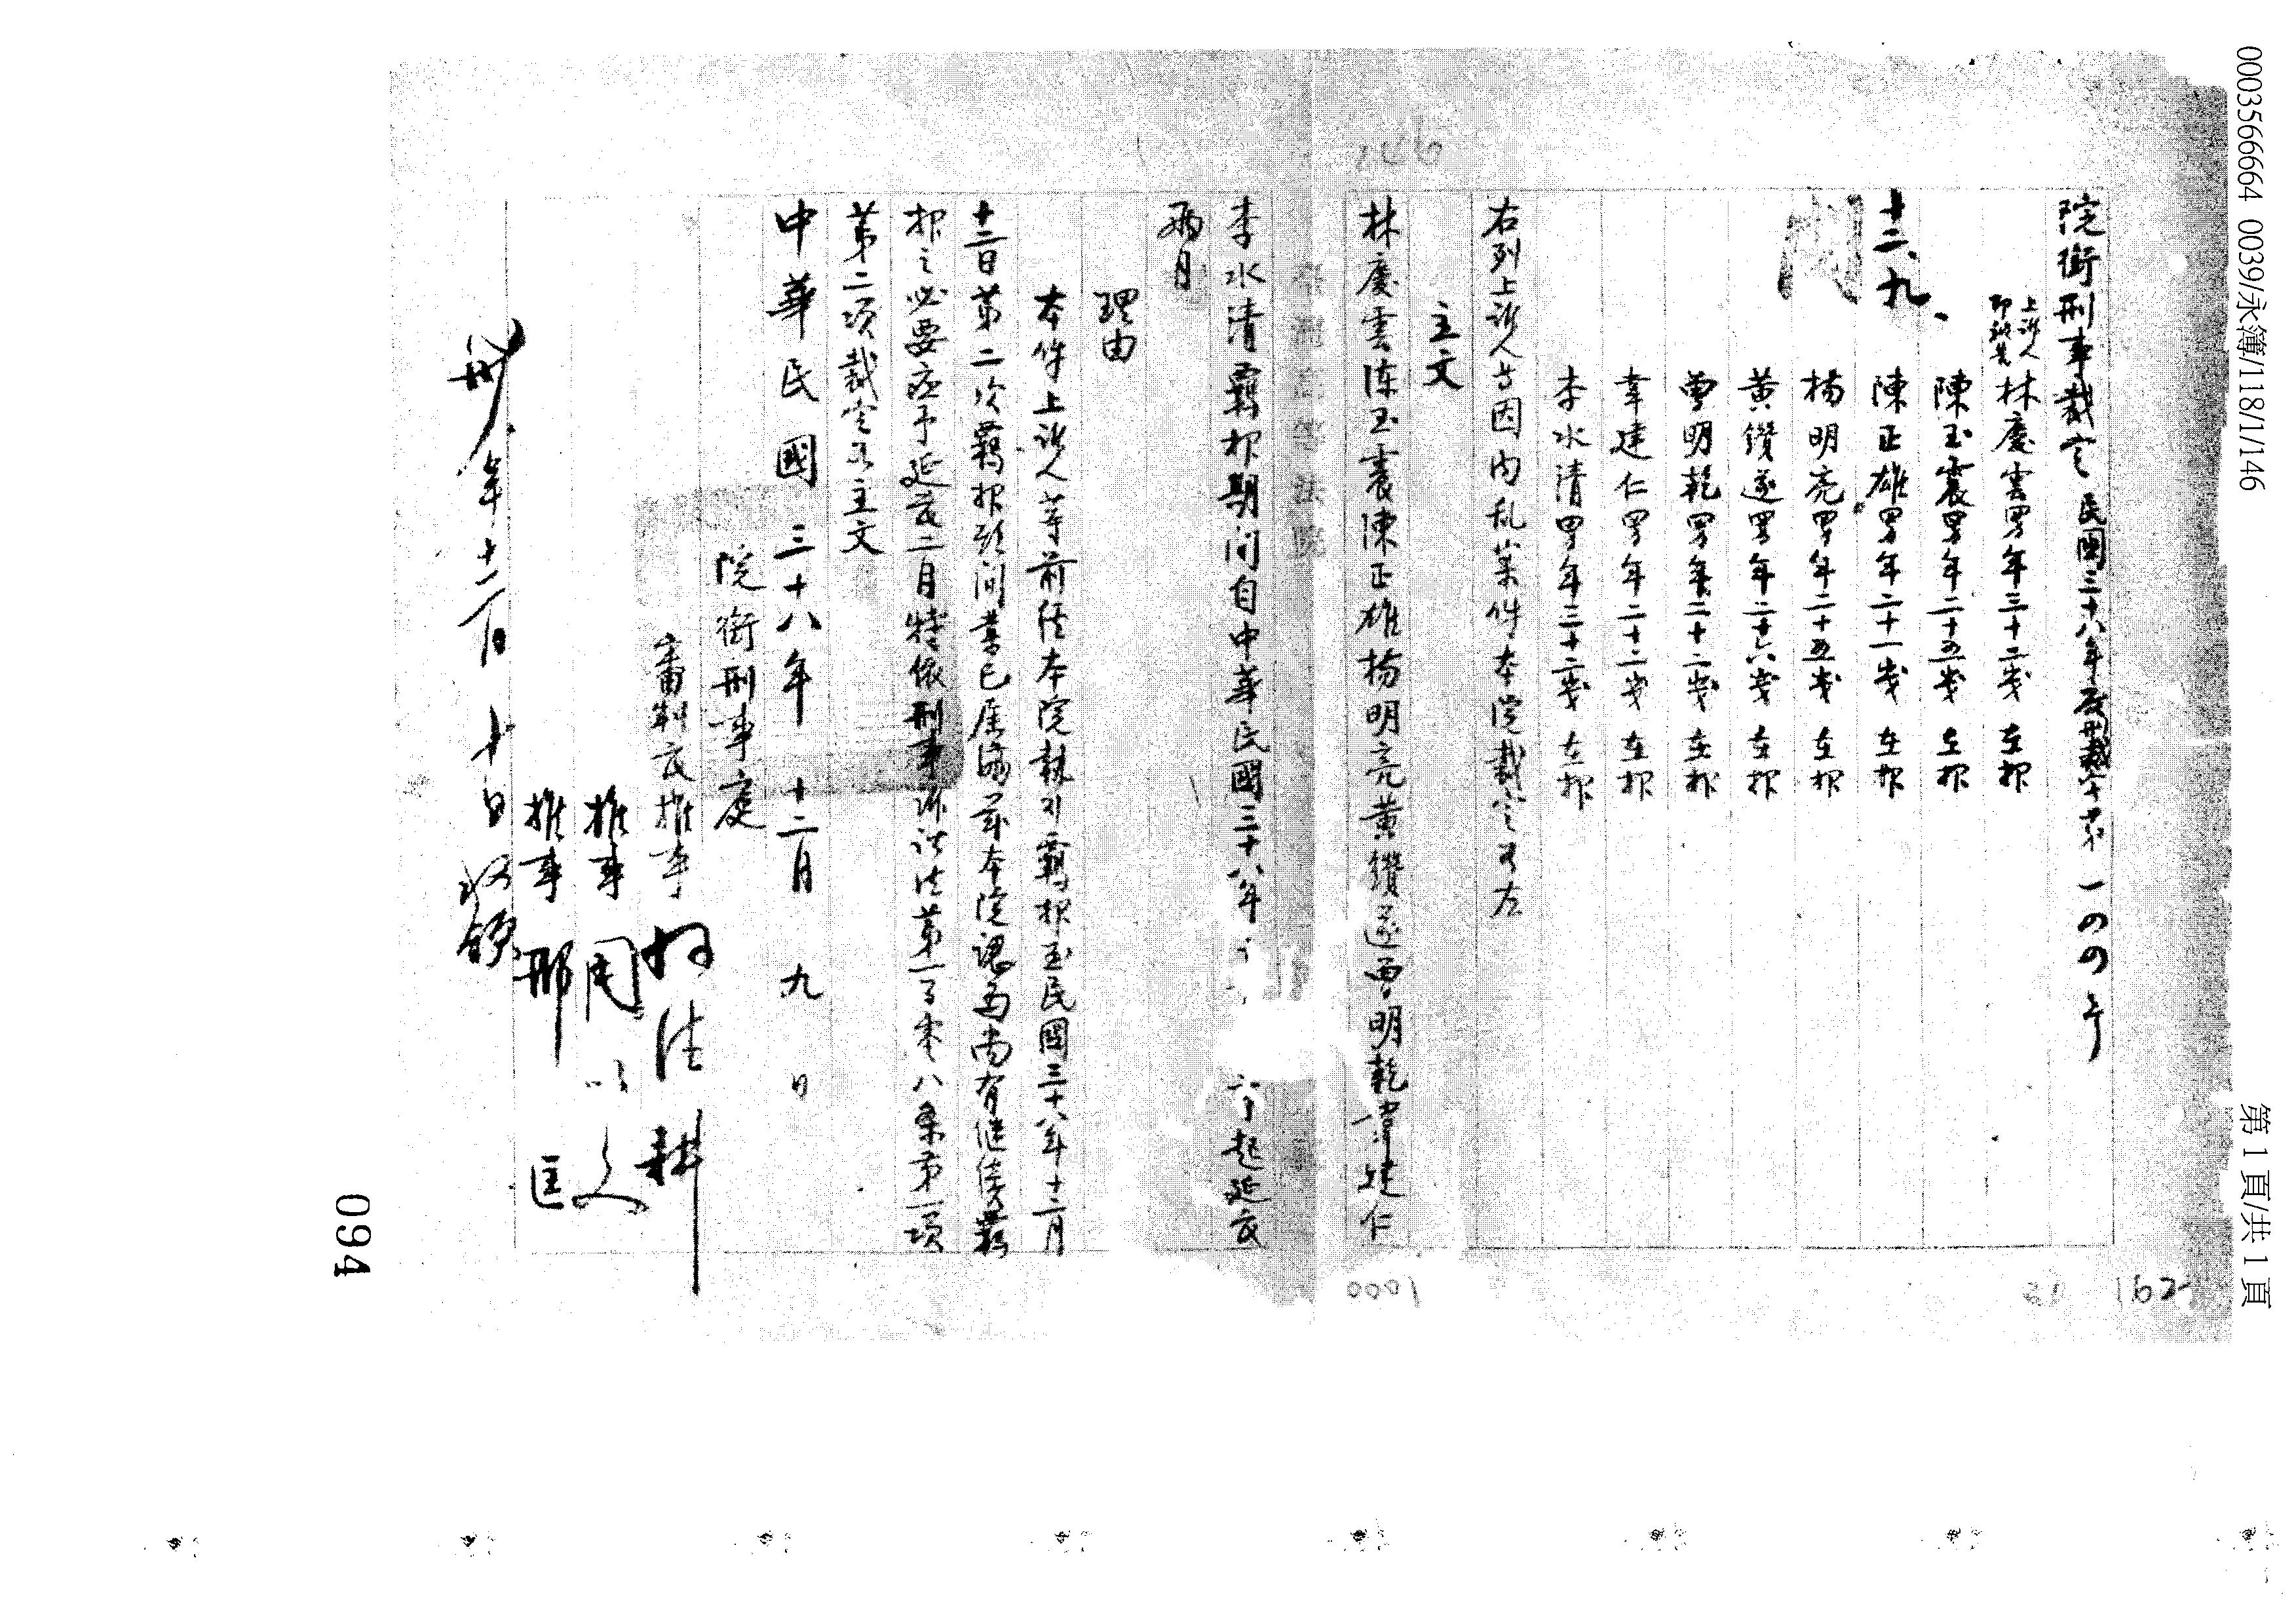 0003566664 0039/永簿/118/1/146
第 1 頁/共 1 頁
院銜刑事裁定 民國三十八年度刑裁字第一四四号
上訴人
即被告
林慶雲 男 年三十二歲 在押
陳玉震 男 年二十五歲 在押
十二、九、
陳正雄 男 年二十一歲 在押
楊明亮 男 年二十五歲 在押
黃鑽遂 男 年二十六歲 在押
曾明乾 男 年二十二歲 在押
韋建仁 男 年二十二歲 在押
李水清 男 年三十二歲 在押
右列上訴人等因內乱案件本院裁定如左
主文
林慶雲陳玉震陳正雄楊明亮黃鑽遂曾明乾韋建仁
李水清羈押期间自中華民國三十八年 起延長
兩月
理由
本件上訴人等前经本院執行羈押至民國三十八年十二月
十二日第二次羈押期间業已屆滿茲本院認為尚有继续羈
押之必要应予延長二月特依刑事訴訟法第一百零八条第一項
第二項裁定如主文
中華民國三十八年十二月九日
院銜刑事庭
審判長推事
推事
推事
年十二月十日
0001
162
094